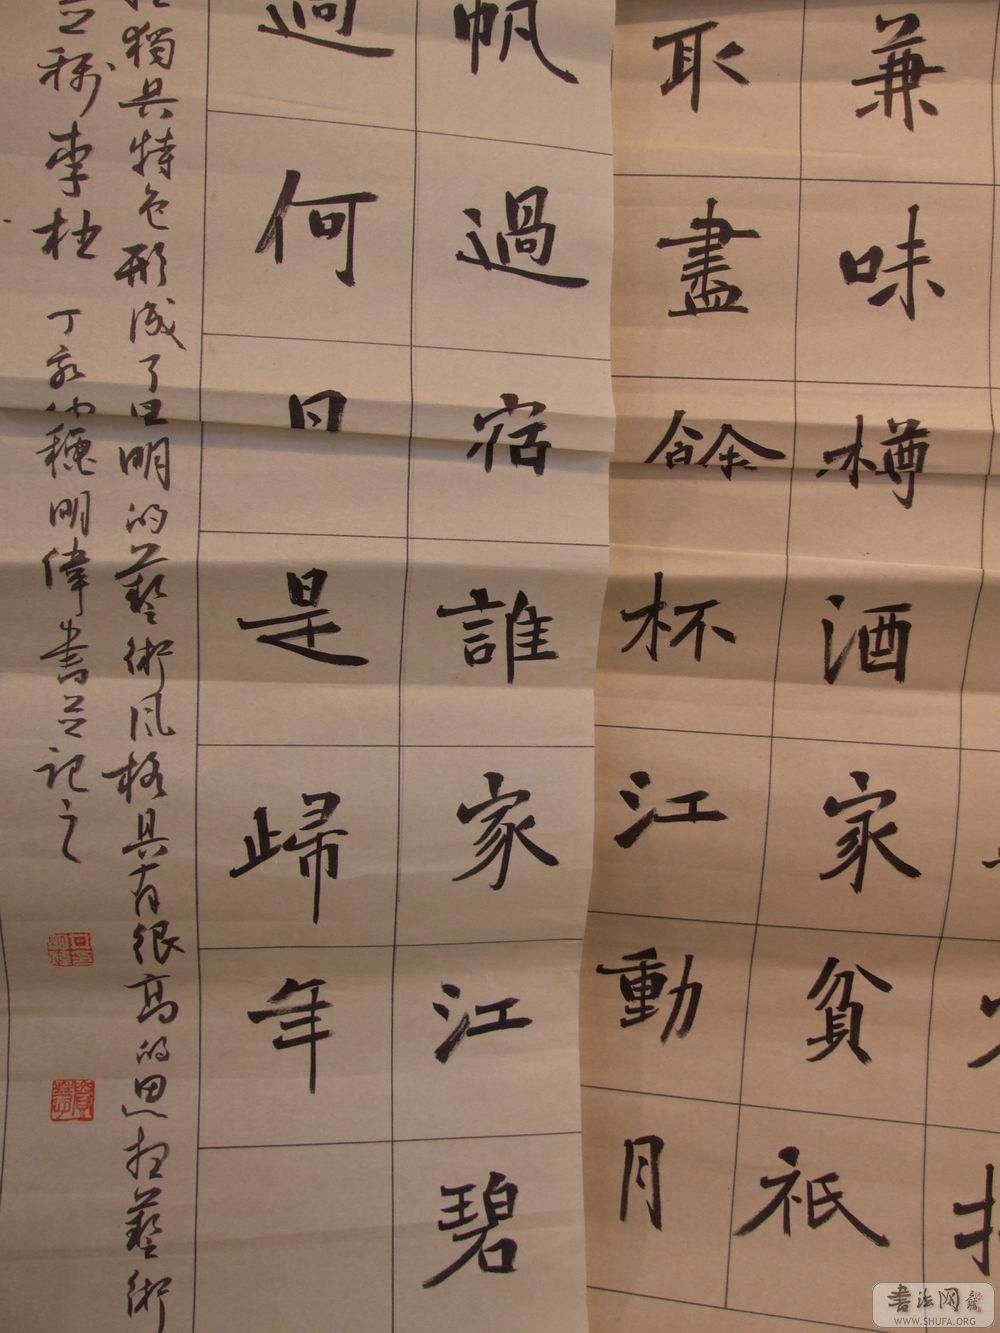 兼味樽酒家貧祇
取盡餘杯江動月
帆過宿誰家江碧
過何日是歸年
獨具特色形成了明的藝術风格具有很高的思想藝術
並稱李杜 丁亥仲穐明偉書並記之
書法网
WWW.SHUFA.ORG